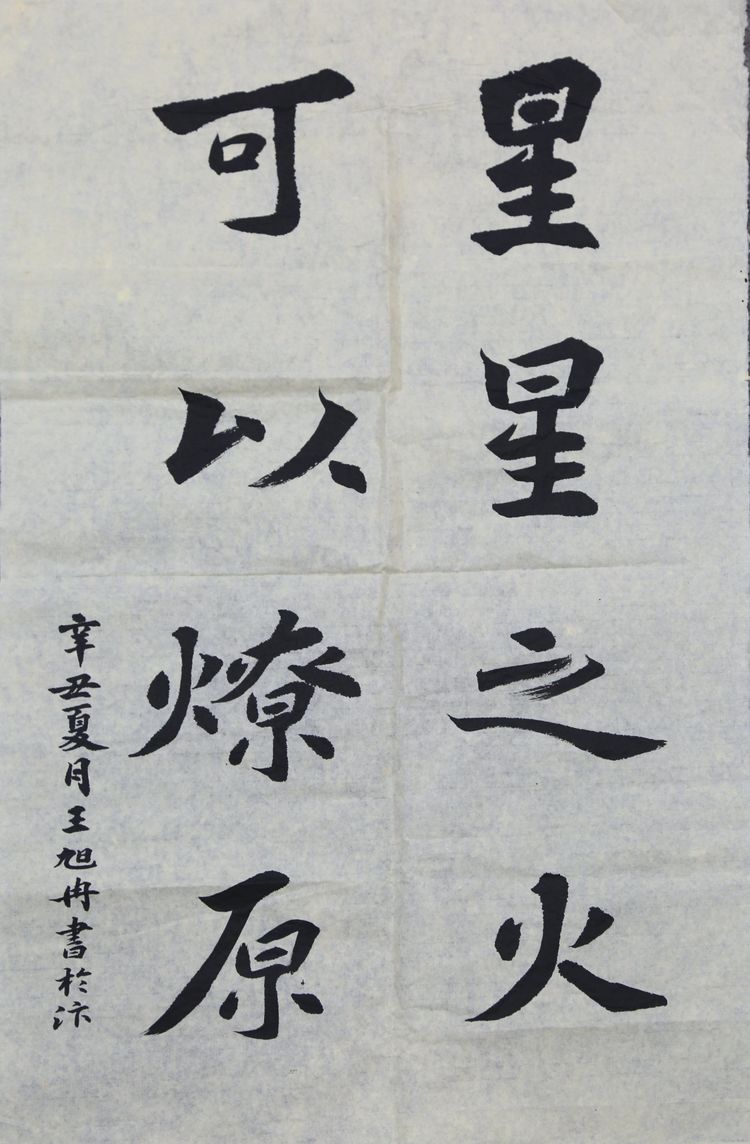 星星之火
可以燎原
辛丑夏月王旭冉書於汴